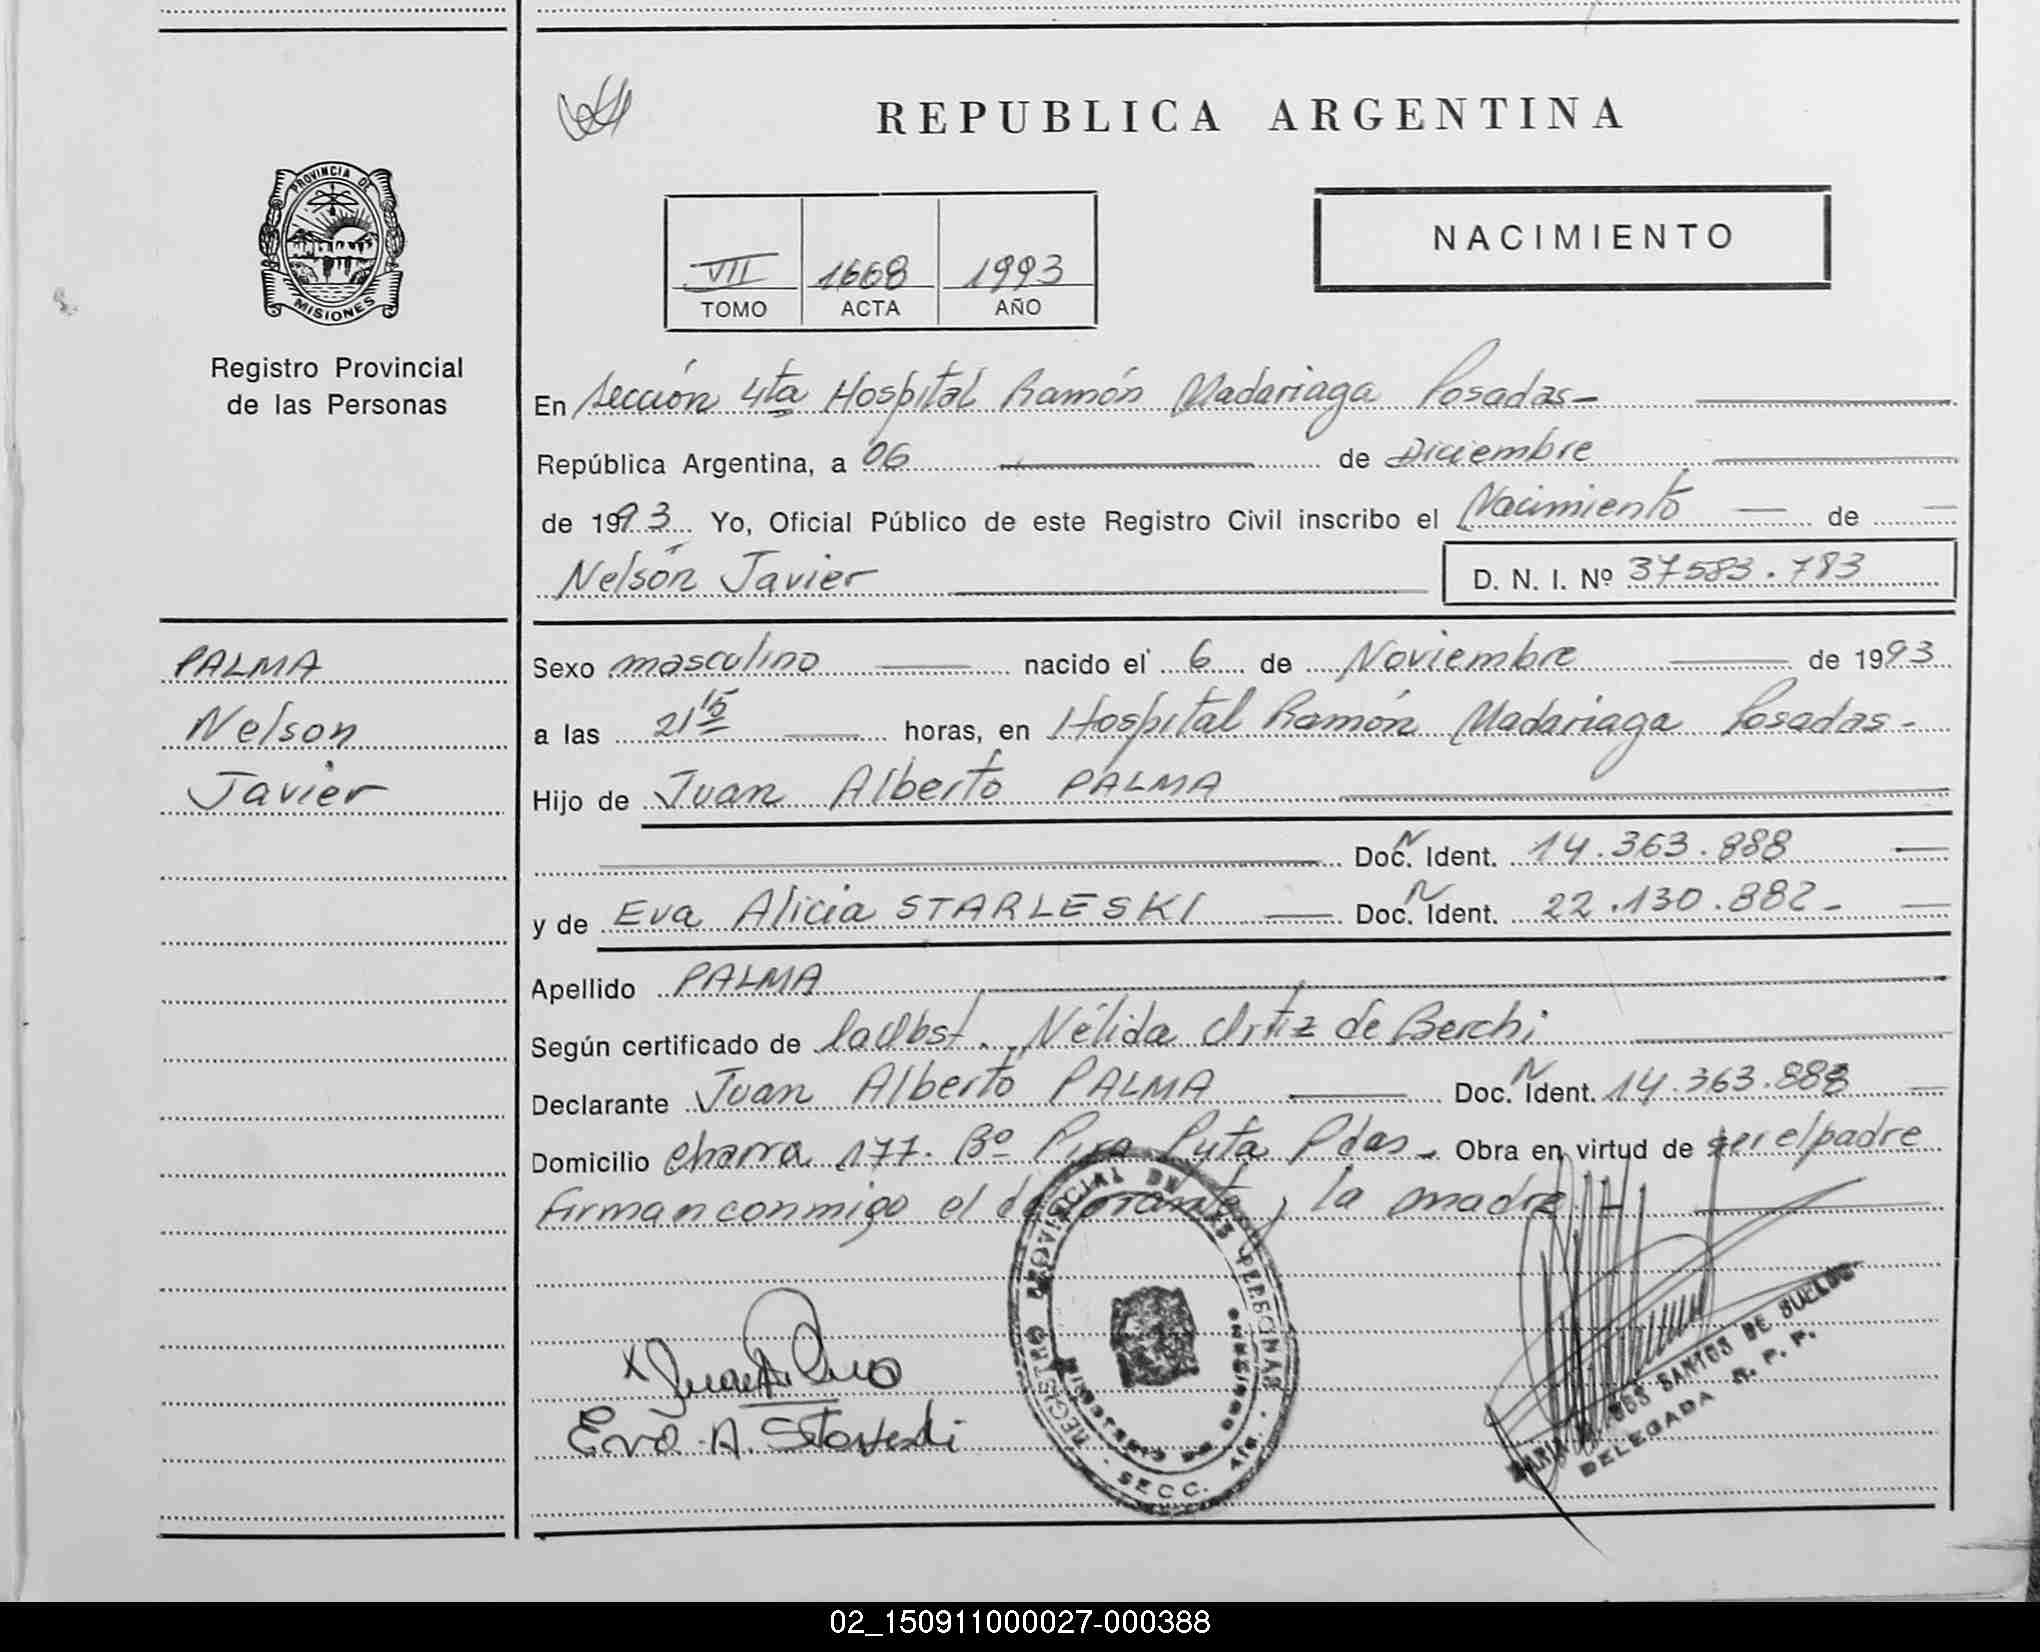 REPUBLICA ARGENTINA
PROVINCIA DE
MISIONES
Registro Provincial
de las Personas
VII 1668 1993
TOMO ACTA AÑO
NACIMIENTO
En Sección 4ta Hospital Ramón Madariaga Posadas-
República Argentina, a 06 de Diciembre
de 1993 Yo, Oficial Público de este Registro Civil inscribo el Nacimiento de
Nelsón Javier D. N. I. Nº 37583.783
PALMA
Nelson
Javier
Sexo masculino nacido el 6 de Noviembre de 1993
a las 21 15 horas, en Hospital Ramón Madariaga Posadas-
Hijo de Juan Alberto PALMA
Doc. N Ident. 14.363.888
y de Eva Alicia STARLESKI Doc. N Ident. 22.130.882-
Apellido PALMA
Según certificado de la Obst. Nélida Ortiz de Berchi
Declarante Juan Alberto PALMA Doc. N Ident. 14.363.888
Domicilio Charra 177. Bº Pira Puta Pdas- Obra en virtud de ser el padre
firman conmigo el declarante y la madre.-
REGISTRO PROVINCIAL DE LAS PERSONAS
SECC. 4ta
Juan A.
Eva A.
SANTOS DE SUELDO
DELEGADA R. P. P.
02_150911000027-000388